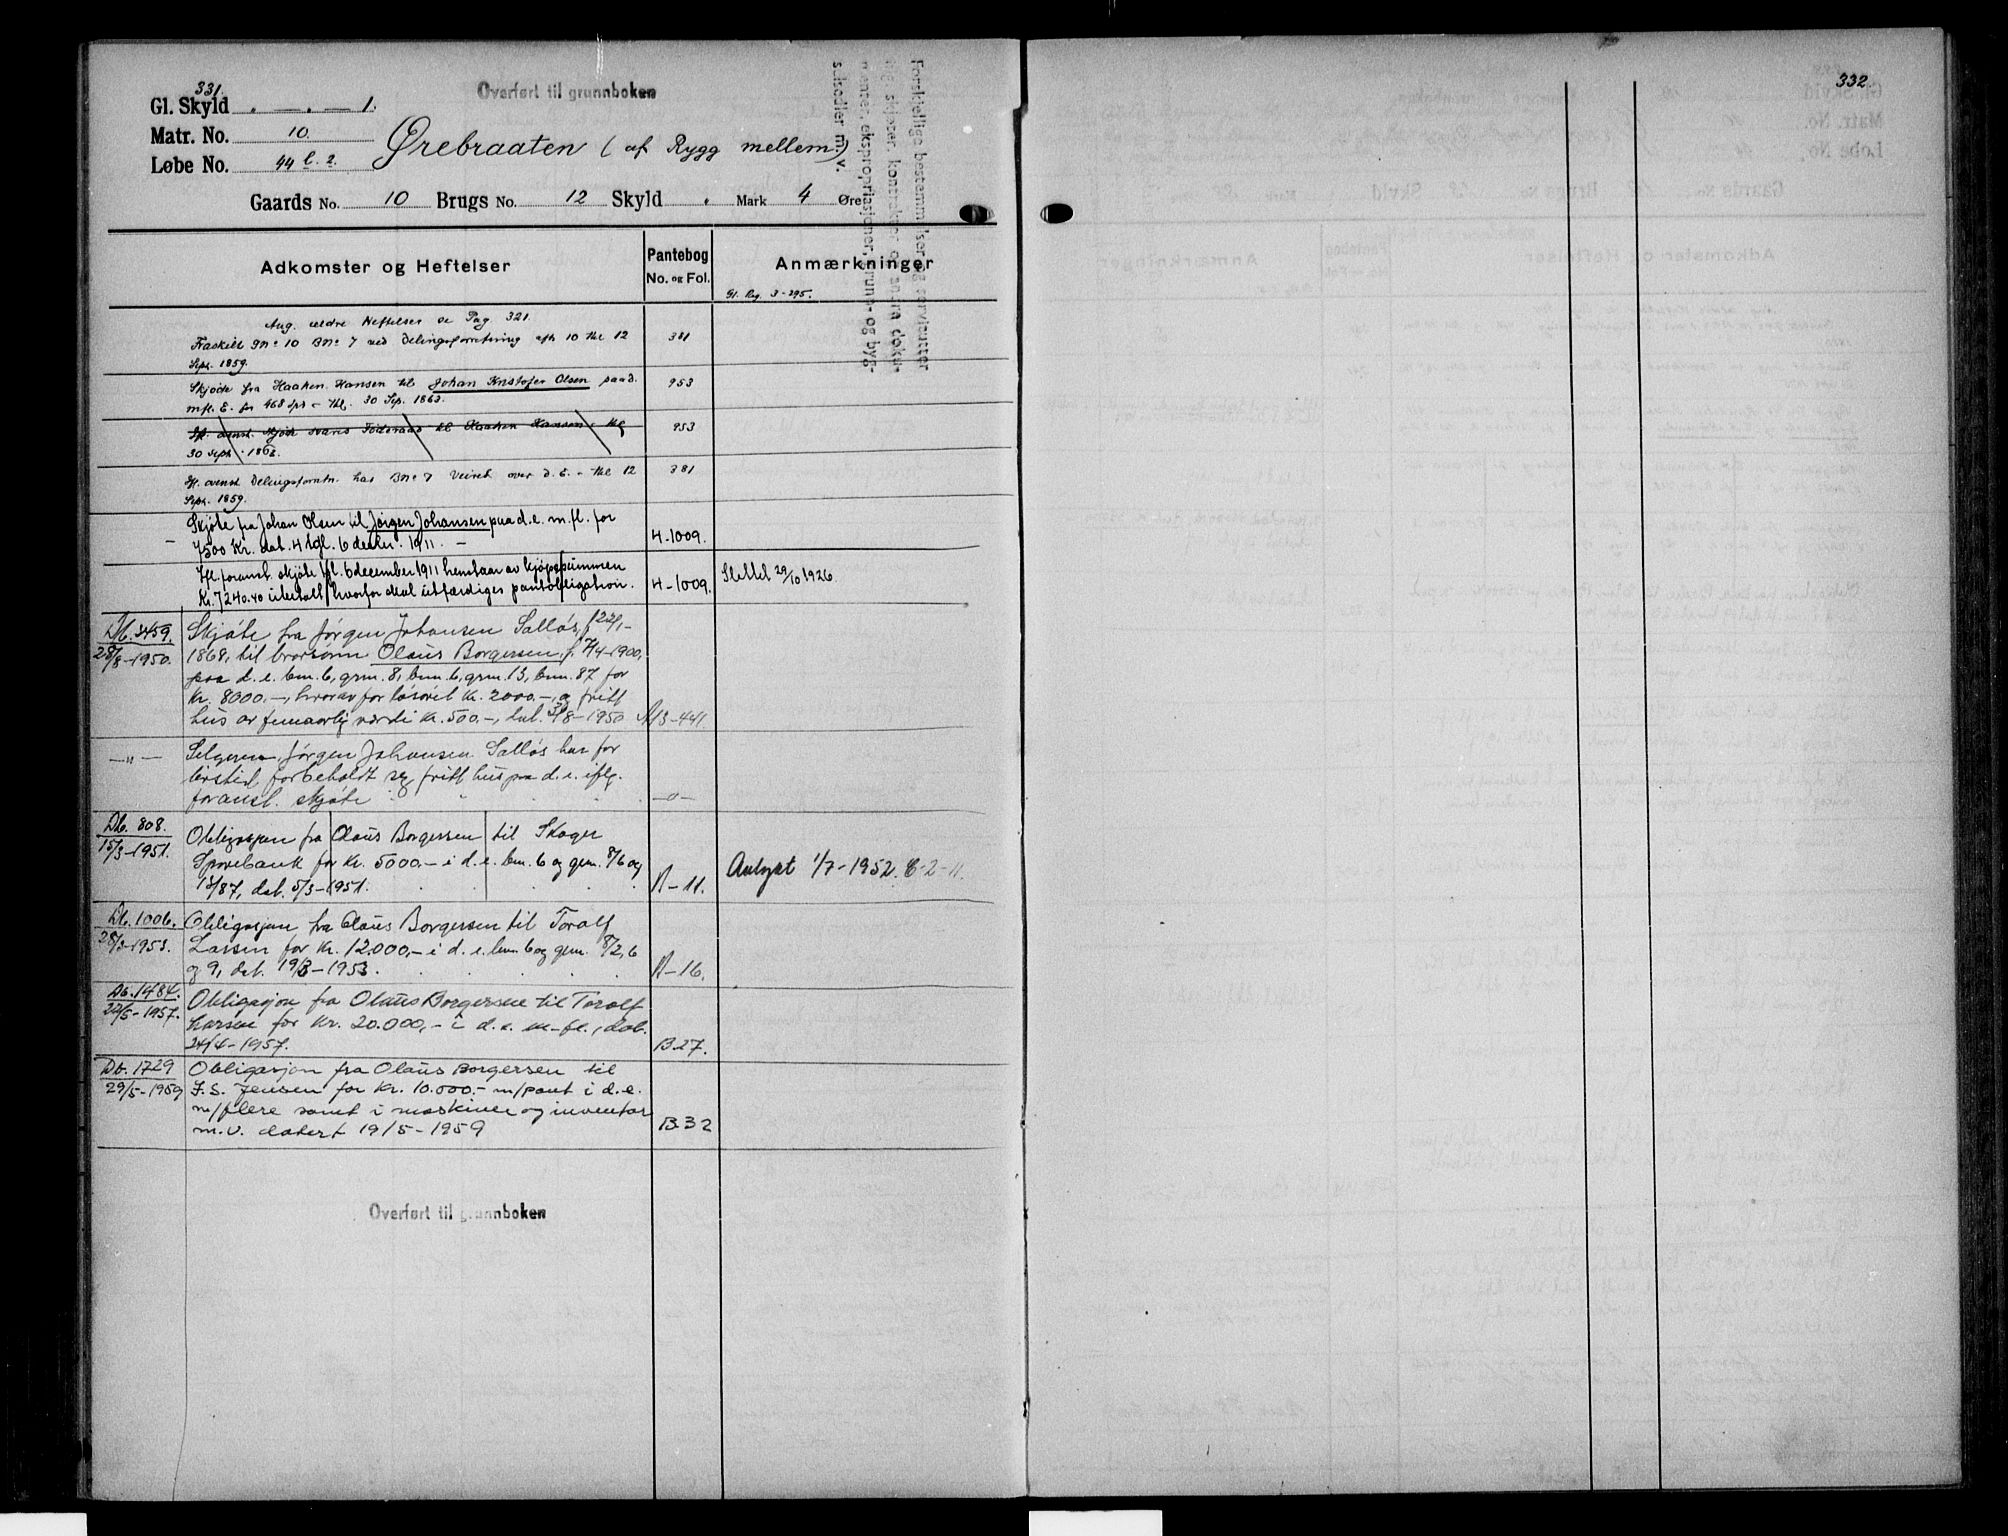 331.
Overført til grunnboken
Gl. Skyld . — . — 1.
Matr. No. 10.
Løbe No. 44 l. 2. Ørebraaten (af Rygg mellem)
Gaards No. 10 Brugs No. 12 Skyld . Mark 4 Øre
Forskjellige bestemmelser og servitutter
skjøter, kontrakter og andre doku-
menter, ekspropriasjoner, grunn- og byg-
selsedler m. v.
Adkomster og Heftelser
Pantebog
No. og Fol.
Anmærkninger
Gl. Reg. 3-295.
Ang. ældre Heftelser se Pag. 321.
Fraskilt Gno 10 Bno 7 ved Delingsforretning afh. 10 thl 12 381
Sept. 1859.
Skjøde fra Haaken Hansen til Johan Kristofer Olsen paa d. 953
m fl. E. for 468 Spd - thl. 30 Sep. 1863.
If. ovenst. Skjøde svares Föderaad til Haaken Hansen - thl 953
30 Sept. 1863.
If. ovenst Delingsforretn. har Bno 7 Veiret over d. E. - thl 12 381
Sept. 1859.
Skjøte fra Johan Olsen til Jørgen Johansen paa d. e. m. fl. for
7500 Kr. dat. 4 tgl. 6 decbr. 1911. — 4-1009.
Ifl. foranst. skjøte tgl. 6 december 1911 henstaar av kjøpesummen
Kr. 7240.40 ubetalt hvorfor skal utfærdiges pantobligation. 4-1009. Slettet 29/10 1926.
Db. 3459. Skjøte fra Jørgen Johansen Salløs, f 22/1-
28/8-1950. 1868, til brorsønn Olaus Borgersen, f. 7/4-1900,
paa d. e. bnr. 6, grnr. 8, bnr. 6, grnr. 13, bnr. 87 for
kr. 8000.-, hvorav for løsøret kr. 2000.-, og fritt
hus av femaarlig værdi kr. 500.-, dat. 3/8-1950 A13-441.
—"— Selgeren, Jørgen Johansen Salløs har for
livstid forbeholdt seg fritt hus paa d. e. iflg.
foranst. skjøte —"—
Db. 808. Obligasjon fra Olaus Borgersen til Skoger
15/3-1951. Sparebank for kr. 5000.- i d. e. bnr. 6 og grnr. 8/6 og
13/87, dat. 5/3-1951. B-11. Avlyst 1/7-1952. C-2-11.
Db. 1006. Obligasjon fra Olaus Borgersen til Toralf
28/3-1953. Larsen for kr. 12.000,- i d. e. bnr. 6 og grnr. 8/2, 6
og 9, dat. 19/3-1953. B-16.
Db. 1484. Obligasjon fra Olaus Borgersen til Toralf
22/5-1957. Larsen for kr. 20.000,- i d. e. m-fl., dat.
24/4-1957. B27.
Db. 1729 Obligasjon fra Olaus Borgersen til
29/5-1959 J. S. Jensen for kr. 10.000.- m/pant i d. e.
m/flere samt i maskiner og inventar
m.v. datert 19/5-1959 B32
Overført til grunnboken
332